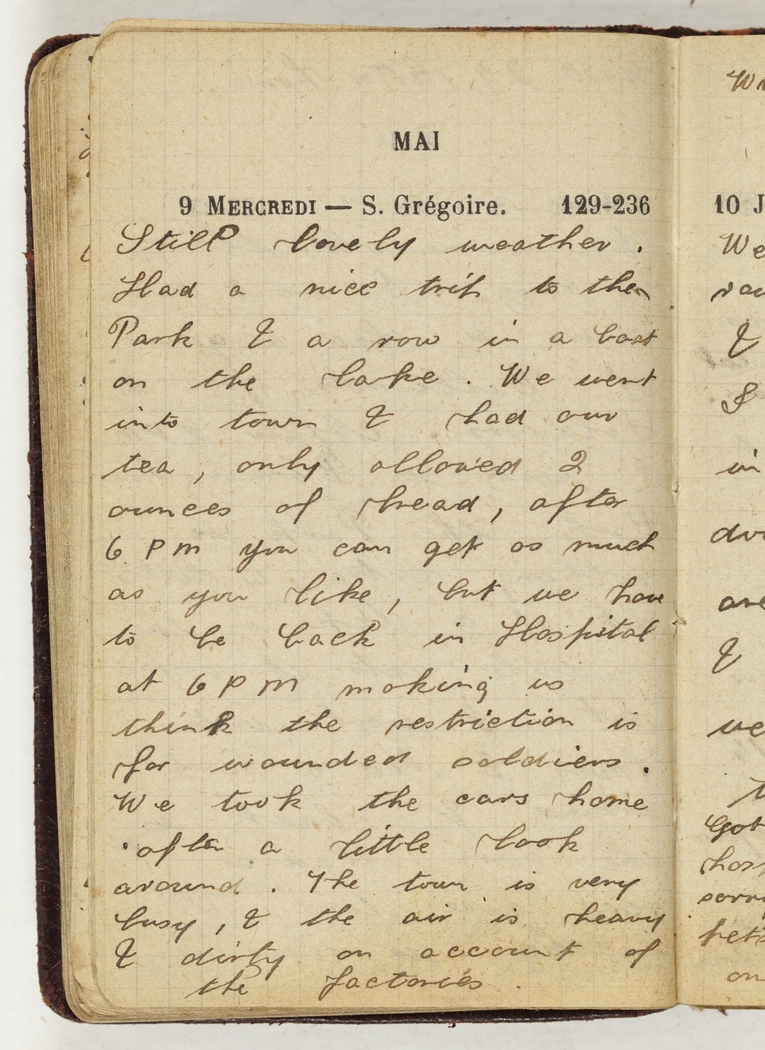 MAI
9 MERCREDI — S. Grégoire. 129-236
Still lovely weather.
Had a nice trip to the
Park & a row in a boat
on the lake. We went
into town & had our
tea, only allowed 2
ounces of bread, after
6 PM you can get as much
as you like, but we have
to be back in Hospital
at 6 PM making us
think the restriction is
for wounded soldiers.
We took the cars home
after a little look
around. The town is very
busy, & the air is heavy
& dirty on account of
the factories.
10 J
We
&
I
in
are
&
we
Got